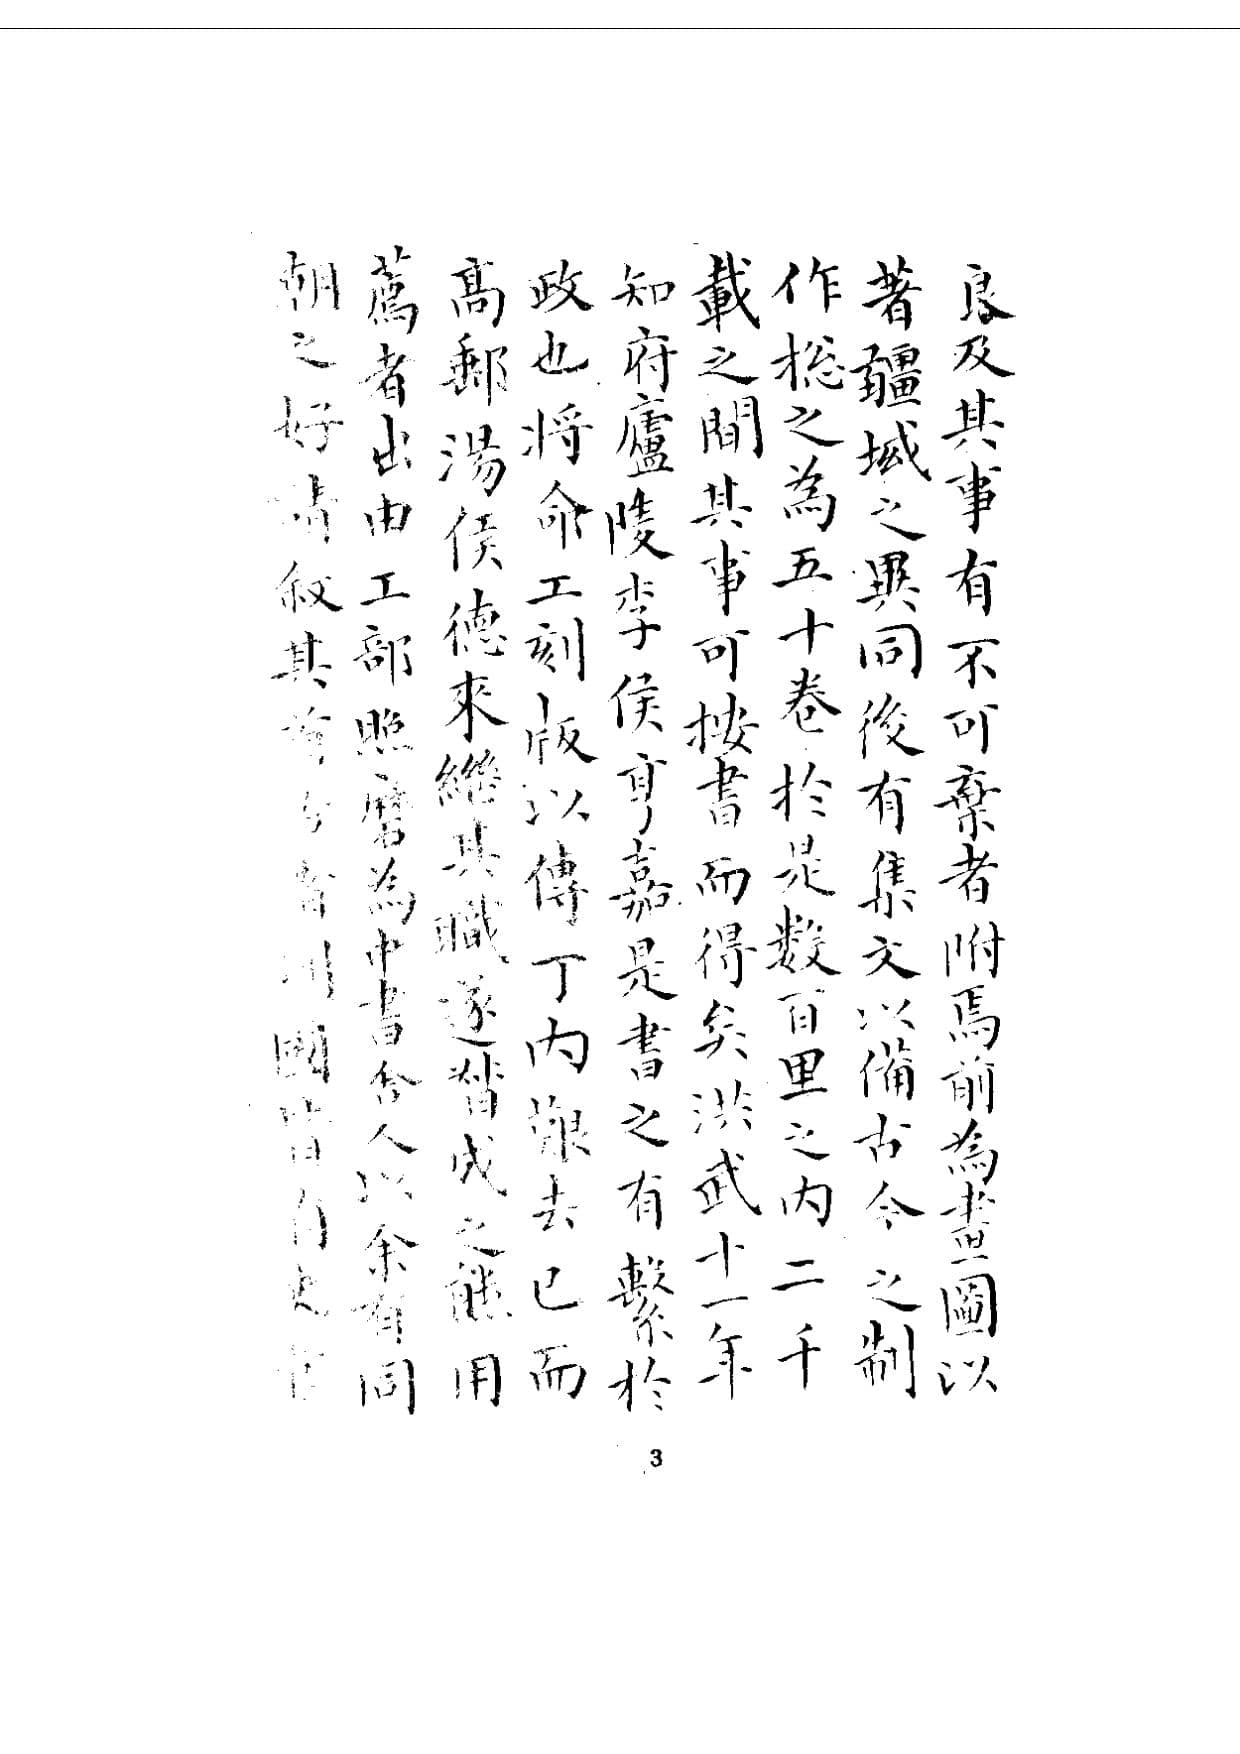 良及其事有不可棄者附焉前為畫圖以
著疆域之異同後有集文以備古今之制
作揔之為五十卷於是數百里之內二千
載之間其事可按書而得矣洪武十一年
知府廬陵李侯亨嘉是書之有繫於
政也將命工刻版以傳丁內艱去已而
高郵湯侯德來繼其職遂替成之能用
薦者出由工部照磨為中書舍人以余有同
朝之好請叙其首今皆州國皆有史
3